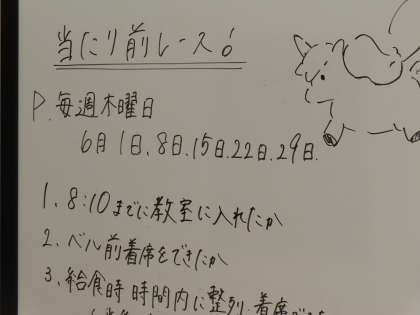 当たり前レース6
P. 毎週木曜日
6月1日、8日、15日、22日、29日.
1、8:10までに教室に入れたか
2、ベル前着席をできたか
3、給食時 時間内に整列、着席できた